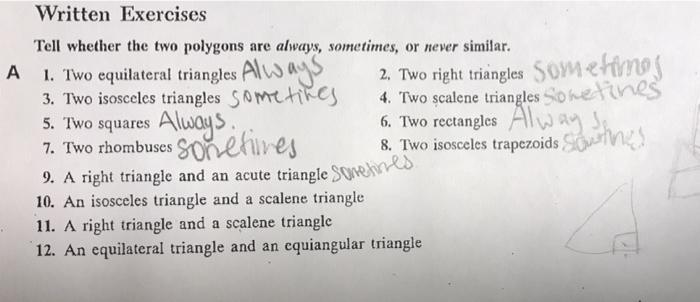 Written Exercises
Tell whether the two polygons are always, sometimes, or never similar.
A 1. Two equilateral triangles Always 2. Two right triangles Sometimes
3. Two isosceles triangles Sometimes 4. Two scalene triangles Sometimes
5. Two squares Always. 6. Two rectangles Always
7. Two rhombuses Sometimes 8. Two isosceles trapezoids Sometimes
9. A right triangle and an acute triangle Sometimes
10. An isosceles triangle and a scalene triangle
11. A right triangle and a scalene triangle
12. An equilateral triangle and an equiangular triangle